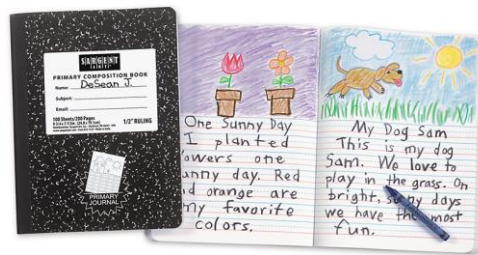 SARGENT
PRIMARY COMPOSITION BOOK
Name: DeSean J.
Subject:
Email:
100 Sheets/200 Pages
1/2" RULING
PRIMARY
JOURNAL
One Sunny Day
I planted
owers one
unny day. Red
nd orange are
my favorite
colors.
My Dog Sam
This is my dog
Sam. We love to
play in the grass. On
bright, sunny days
we have the most
fun.